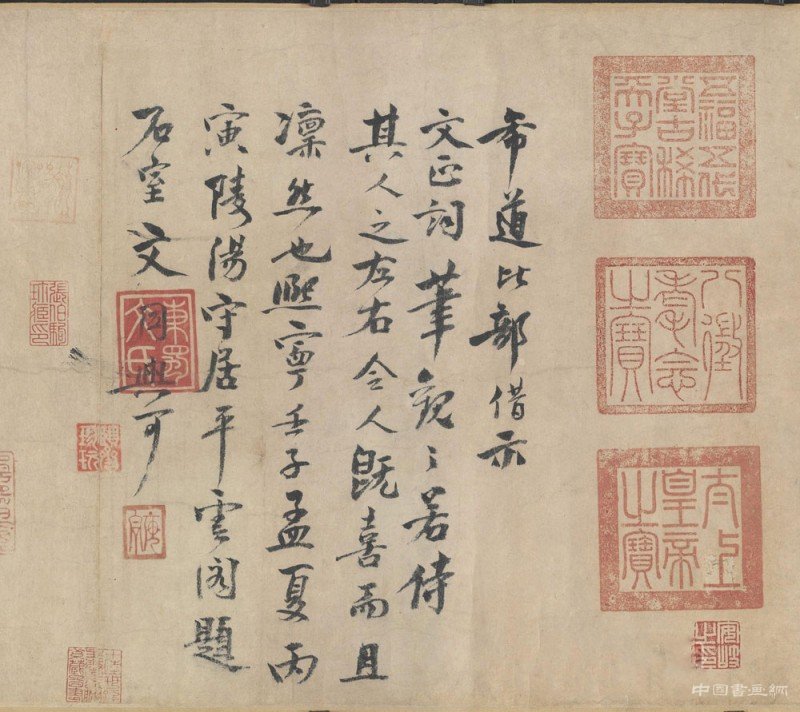 希道比部借示
文正詞筆觀〻若侍
其人之左右令人既喜而且
凜然也熙寧壬子孟夏丙
寅陵陽守居平雲閣題
石室文同與可
東蜀文氏
五福五代堂古稀天子寶
八徵耄念之寶
太上皇帝之寶
張伯駒珍藏印
中国書画網